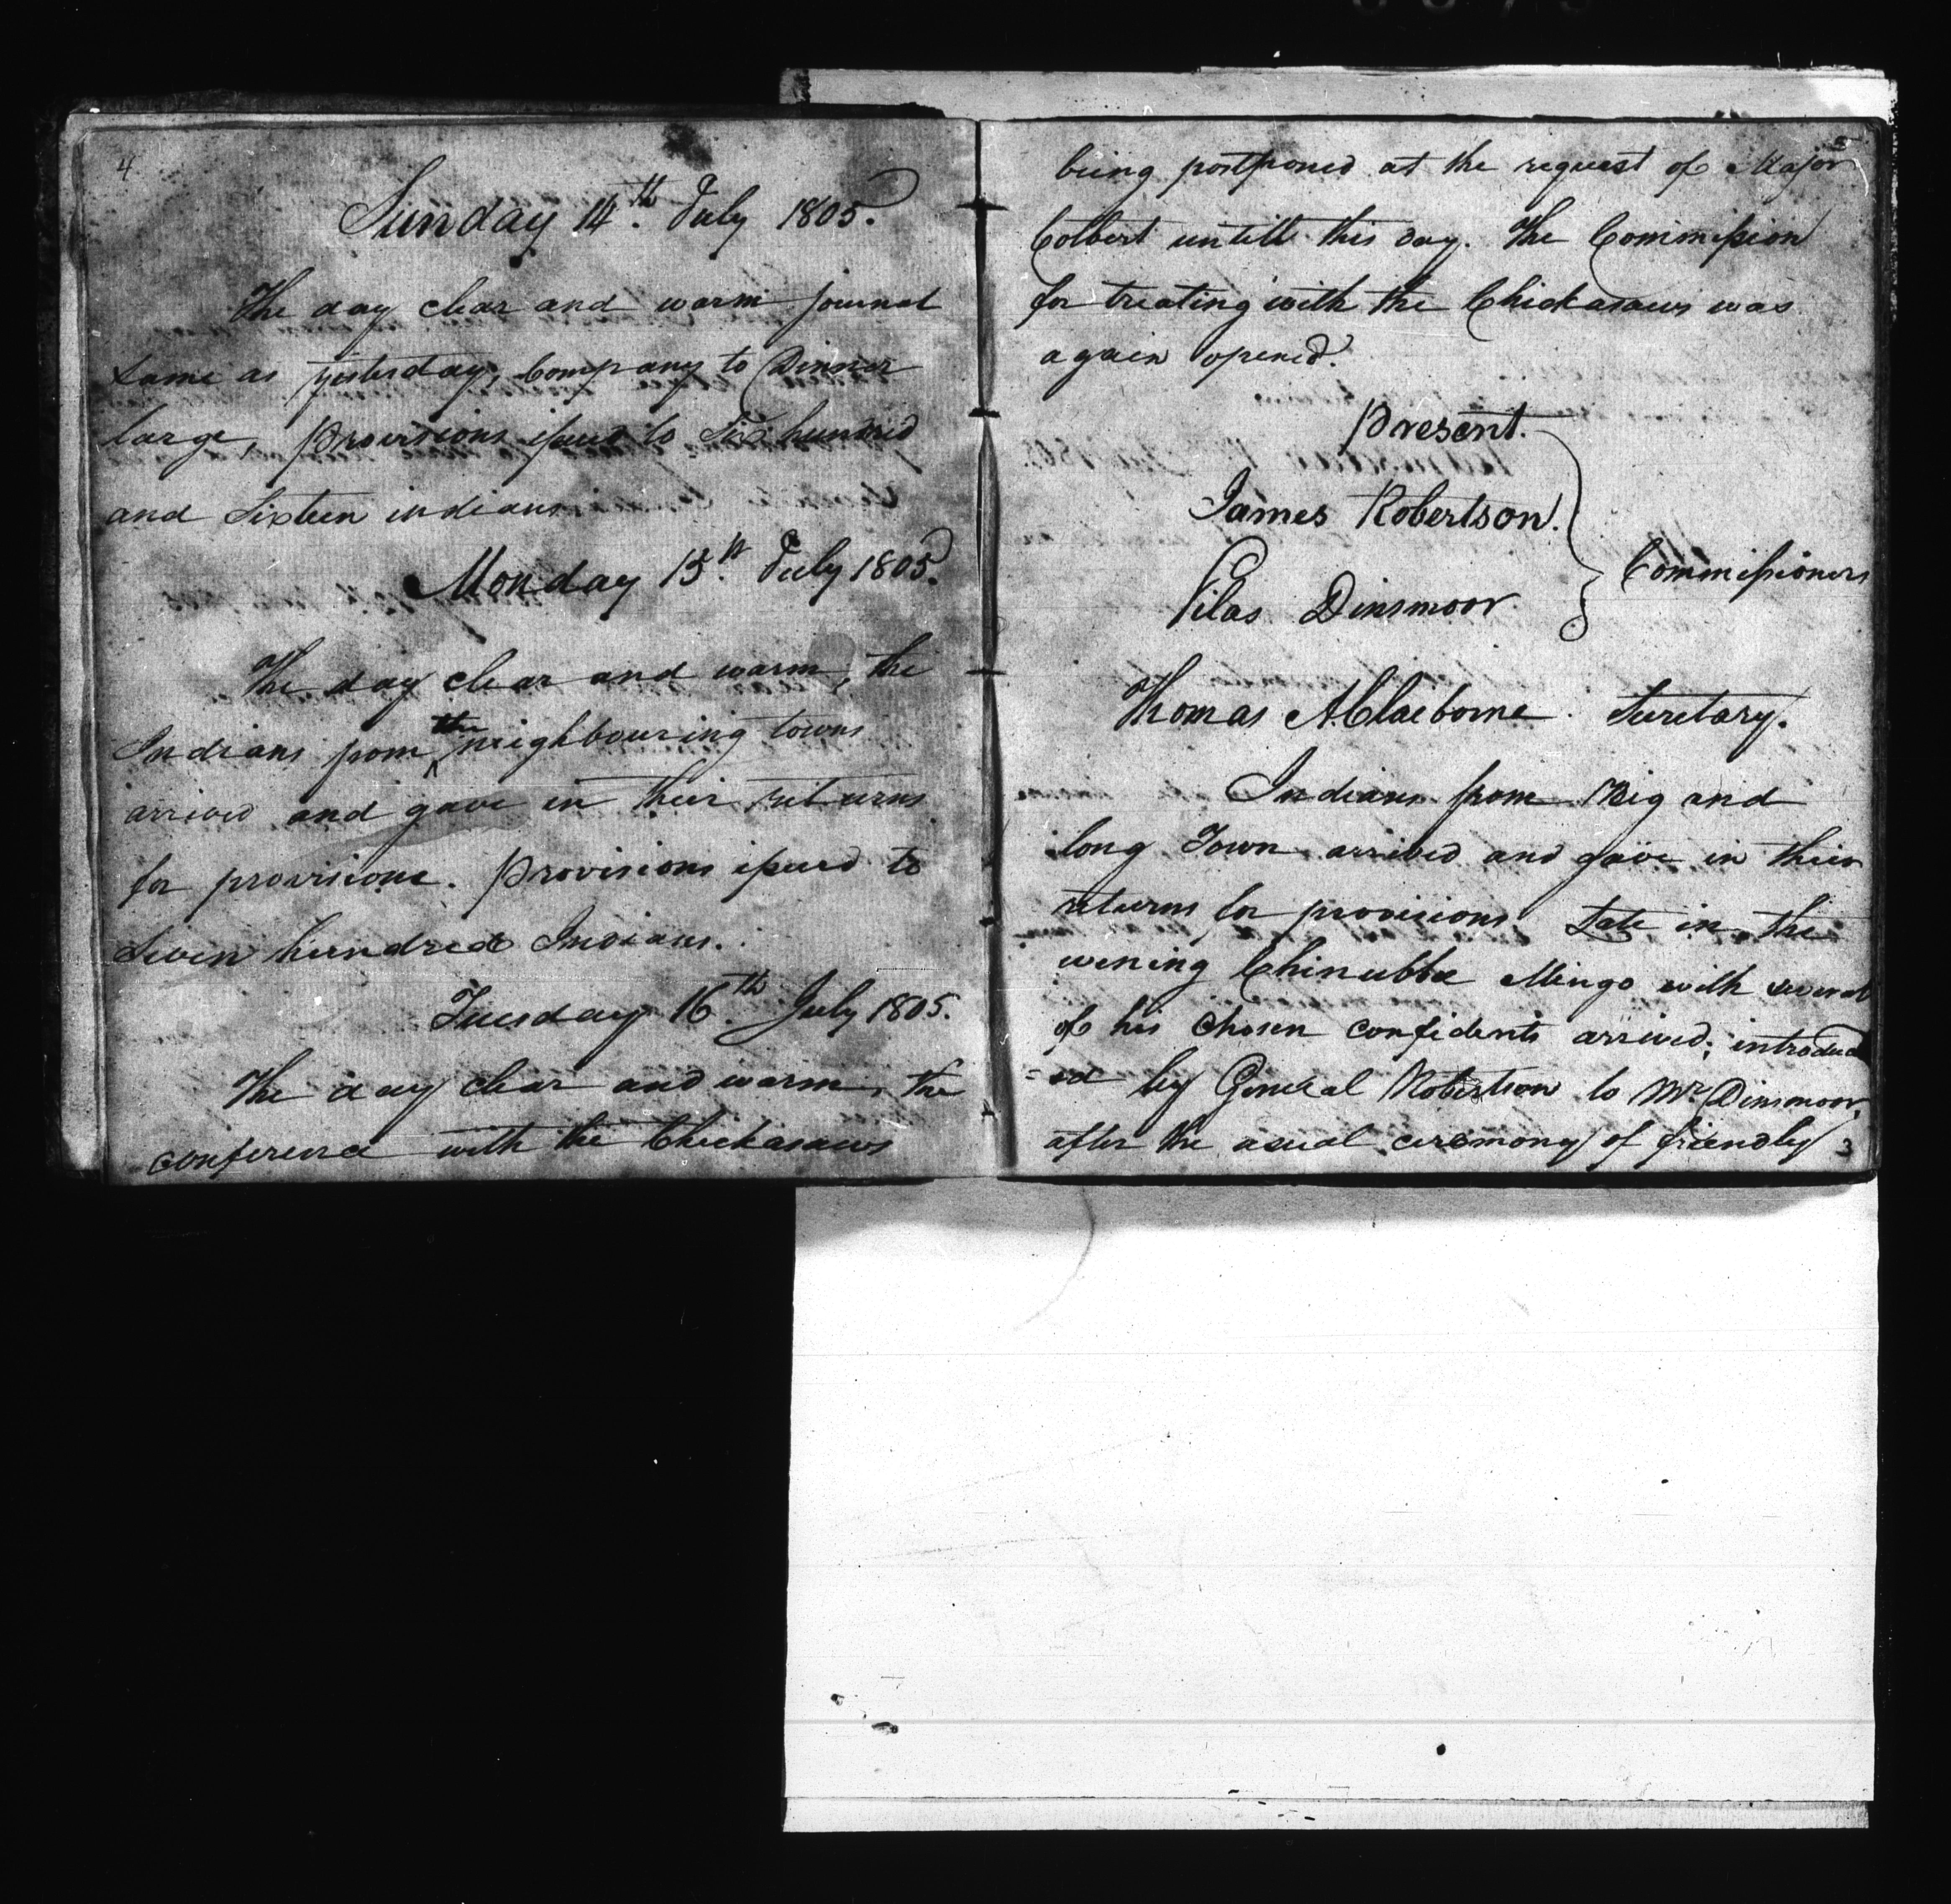 4
Sunday 14th. July 1805.
The day clear and warm journal
same as yesterday, Company to Dinner
large, Provisions issued to Six hundred
and Sixteen indians
Monday 15th. July 1805.
The day clear and warm, the
Indians from the neighbouring towns
arrived and gave in their returns
for provisions. Provisions issued to
Seven hundred Indians.
Tuesday 16th. July 1805.
The day clear and warm, the
conference with the Chickasaws
5
being postponed at the request of Major
Colbert untill this day. The Commission
for treating with the Chickasaws was
again opened.
Present.
James Robertson.
Silas Dinsmoor.
Commissioners
Thomas A Claiborne. Secretary.
Indians from Big and
long Town arrived and gave in their
returns for provisions. Late in the
evening Chinubbee Mingo with several
of his Chosen confidents arrived; introduc
=ed by General Robertson to Mr. Dinsmoor,
after the usual ceremony of friendly
3